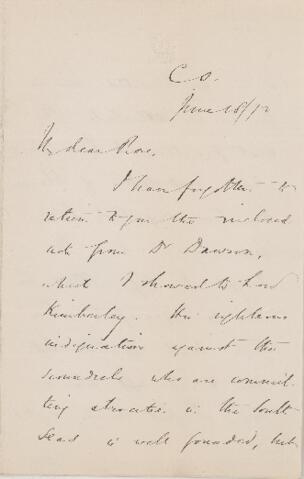 C.O.
June 18/72
My dear Rose,
I have forgotten to
return to you the inclosed
note from Dr Dawson,
which I showed to Lord
Kimberley. His righteous
indignation against the
scoundrels who are commit-
ting atrocities in the South
Seas is well founded, but